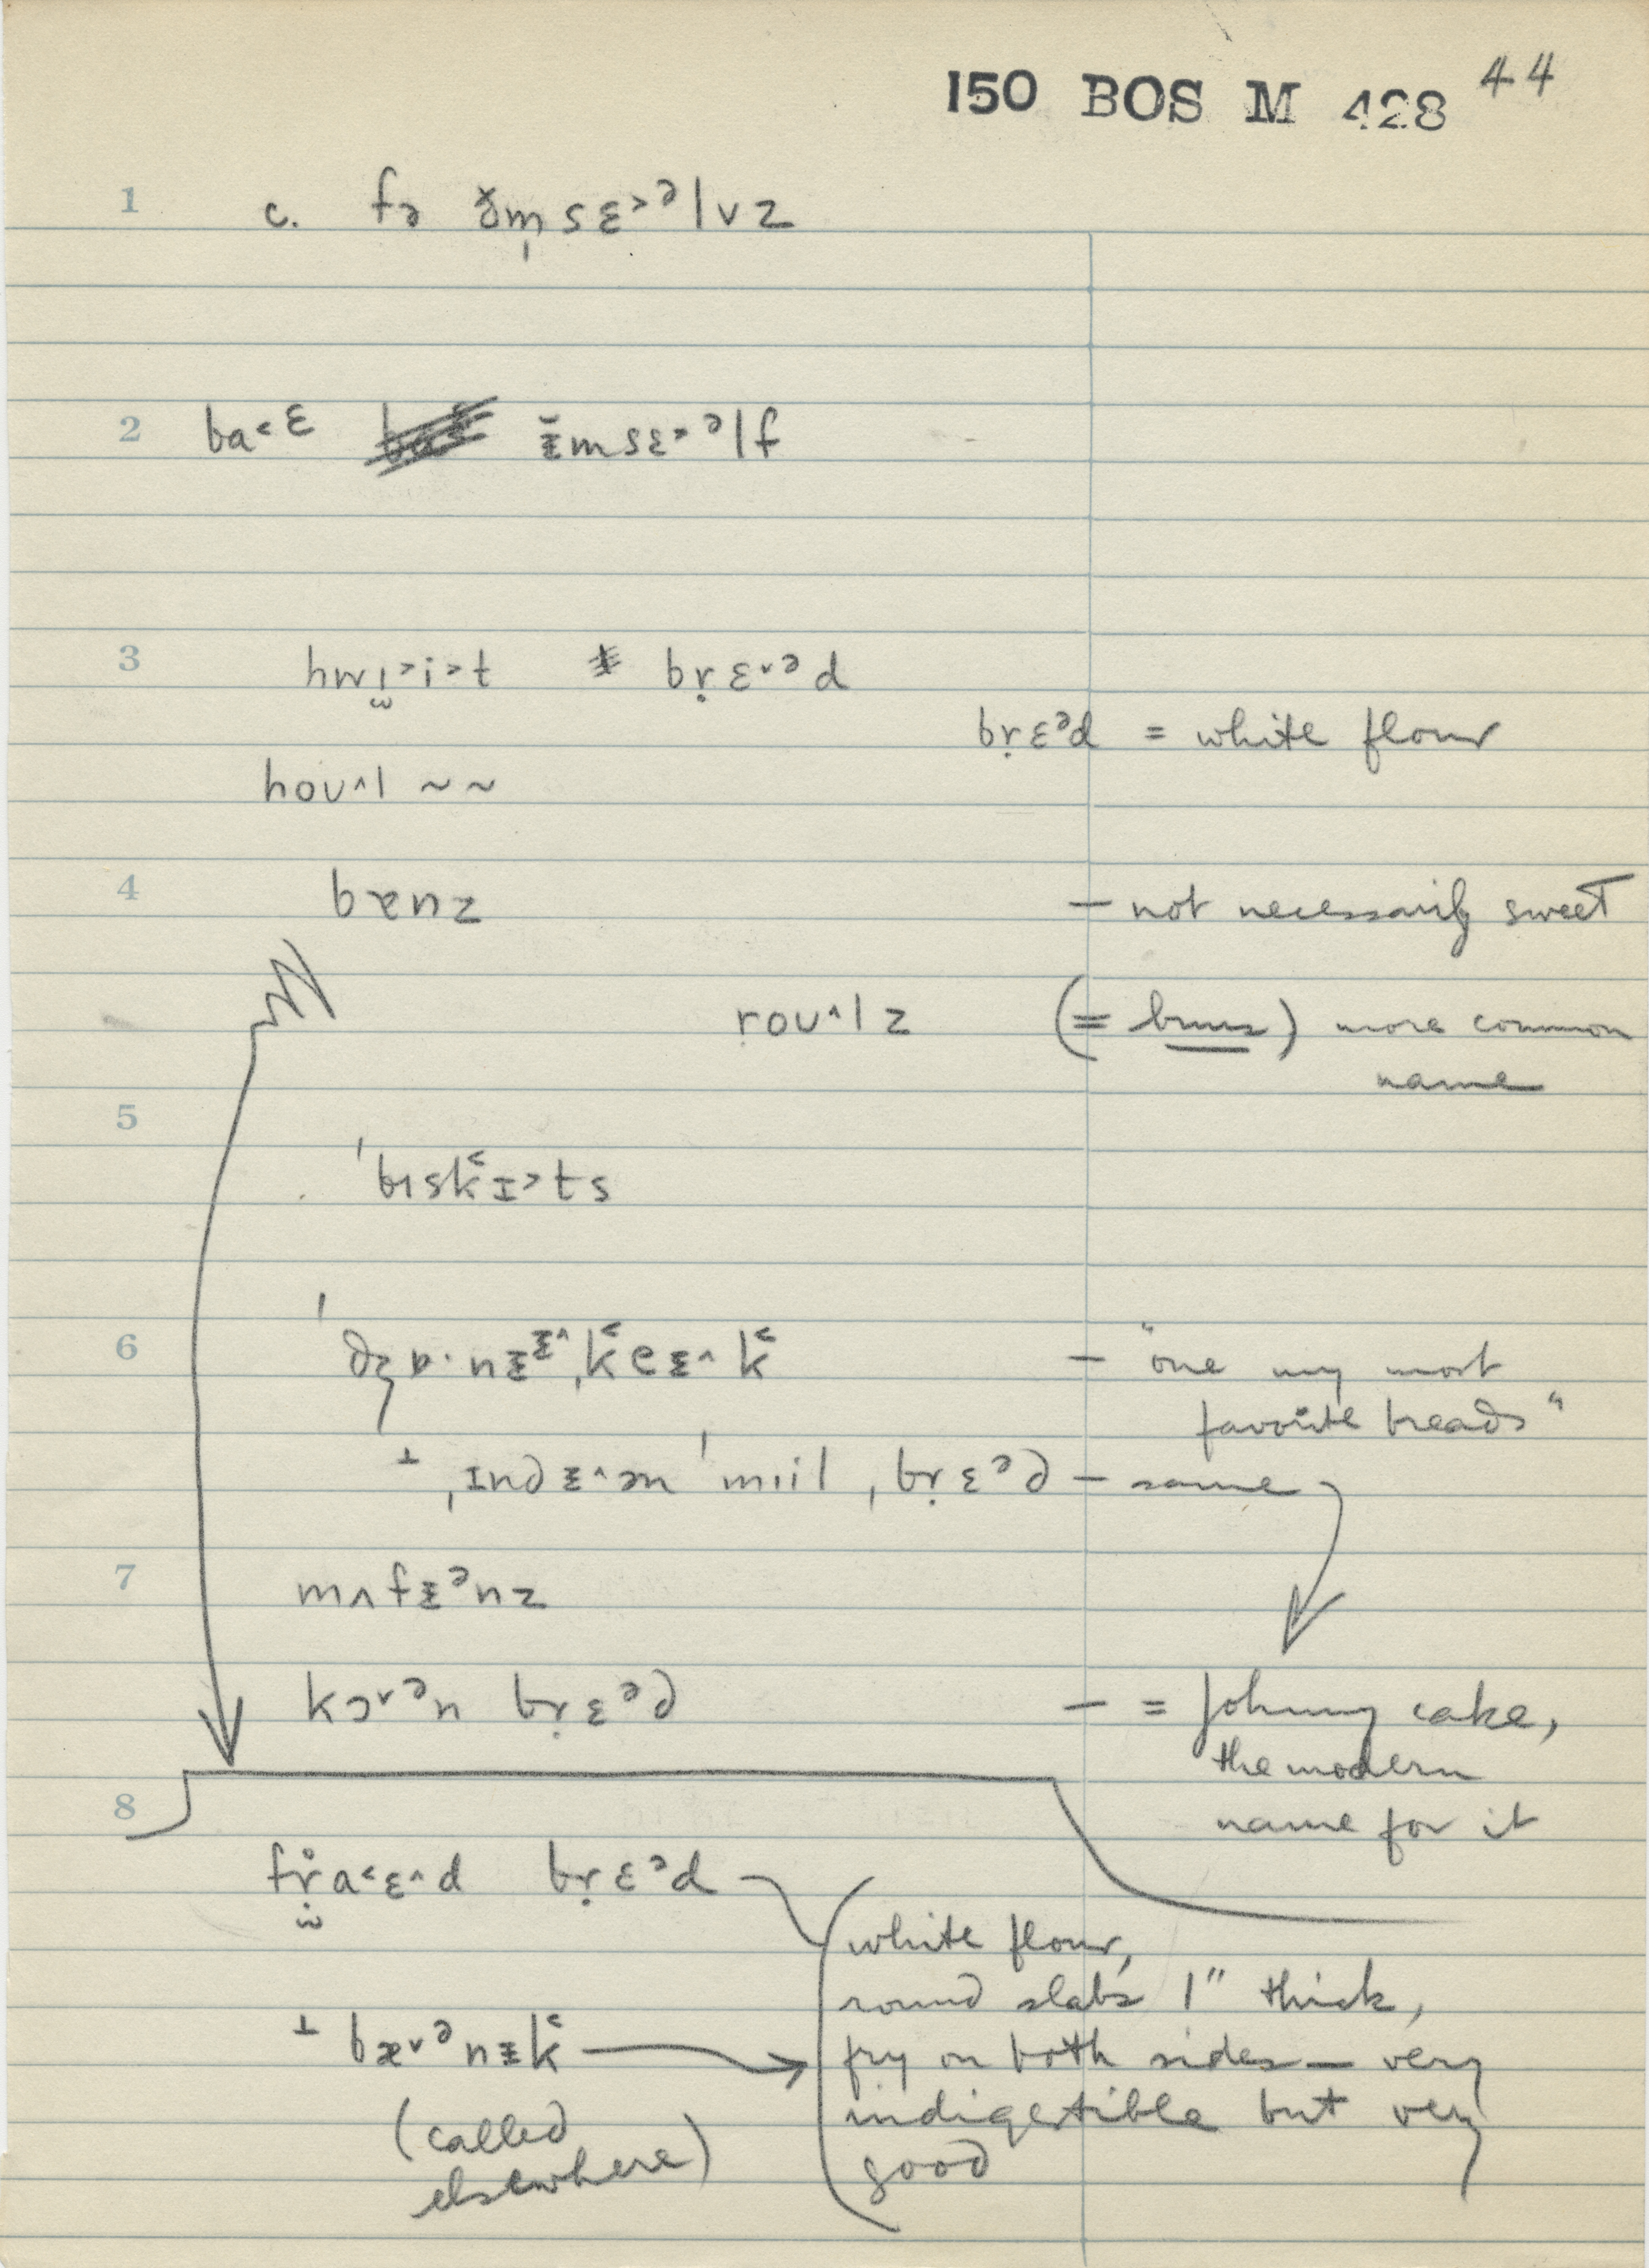 150 BOS M 428 44
1 c. fə ð̆m̩sɛ˃ᵊlvz
2 ba˂ᵋ ɨ̆msɛ˃ᵊlf
3 hwɪ̣˃i˃t brɛ̣˅ᵊd
brɛ̣ᵊd = white flour
hoʊ˄l ~ ~
4 bɐnz – not necessarily sweet
roʊ˄lz (= buns) more common
name
5
ˈbɪsk˂ɪ˃ts
6 ˈdʒɒ·nɨᵻ˄ˌk˂eɪ˄k˂ – "one my most
favorite breads"
⊥ ˌɪndɨ˄ən ˈmɪil ˌbrɛ̣ᵊd – same
7 mʌfɨᵊnz
kɔ˅ᵊn brɛ̣ᵊd – = Johnny cake,
the modern
8 name for it
fr̥a˂ɛ˄d brɛ̣ᵊd
white flour,
round slabs 1" thick,
⊥ bæ˅ᵊnɨk˂ fry on both sides – very
(called indigestible but very
elsewhere) good